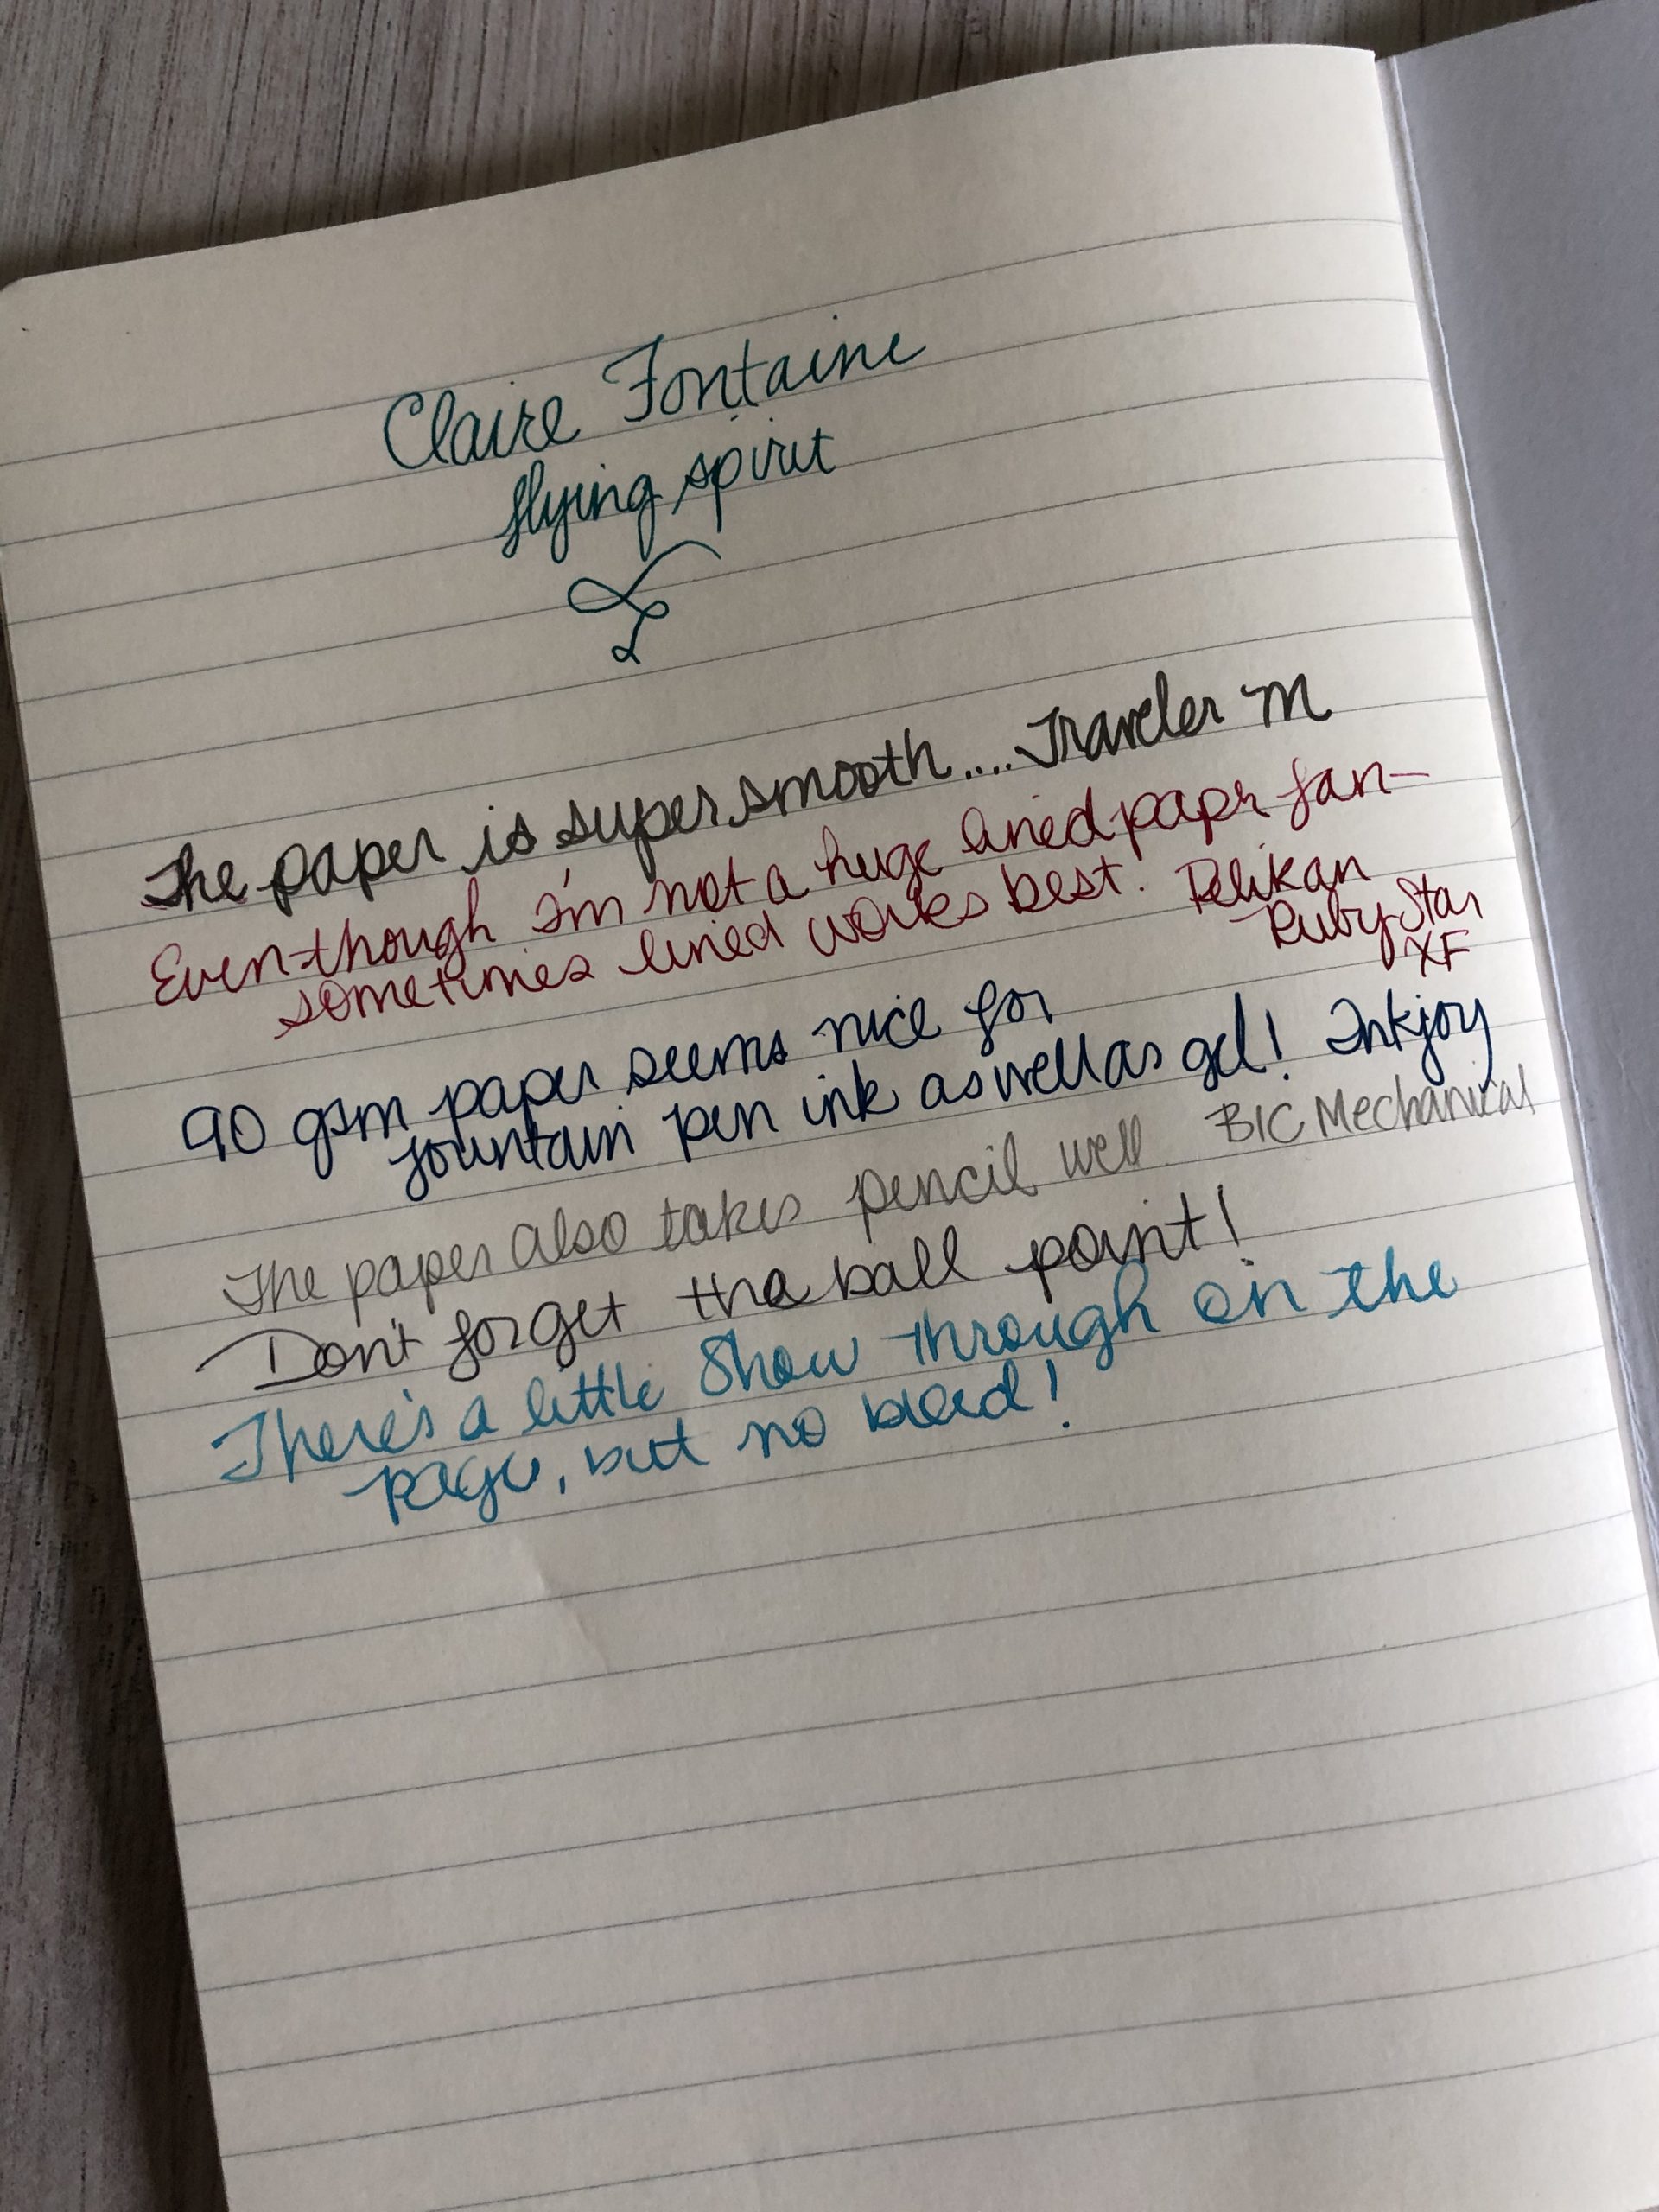 Claire Fontaine
flying spirit
The paper is super smooth.... Traveler M
Even though I'm not a huge lined papr fan-
sometimes lined works best. Pelikan
Ruby Star
XF
90 gsm paper seems nice for
fountain pen ink as well as gel! Inkjoy
The paper also takes pencil well. BIC Mechanical
Don't forget the ball point!
There's a little Show through on the
page, but no bleed!